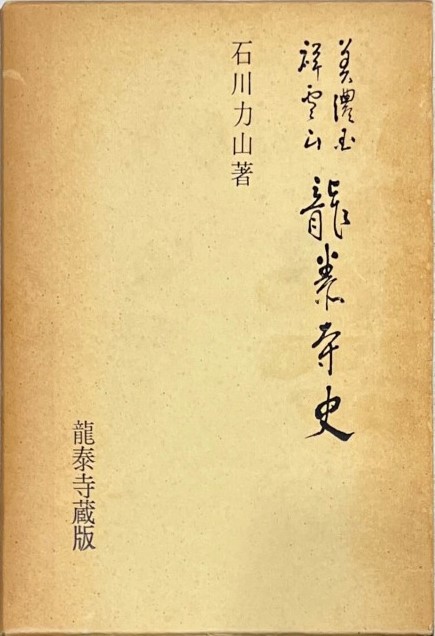 美濃国
祥雲山
龍泰寺史
石川力山著
龍泰寺蔵版